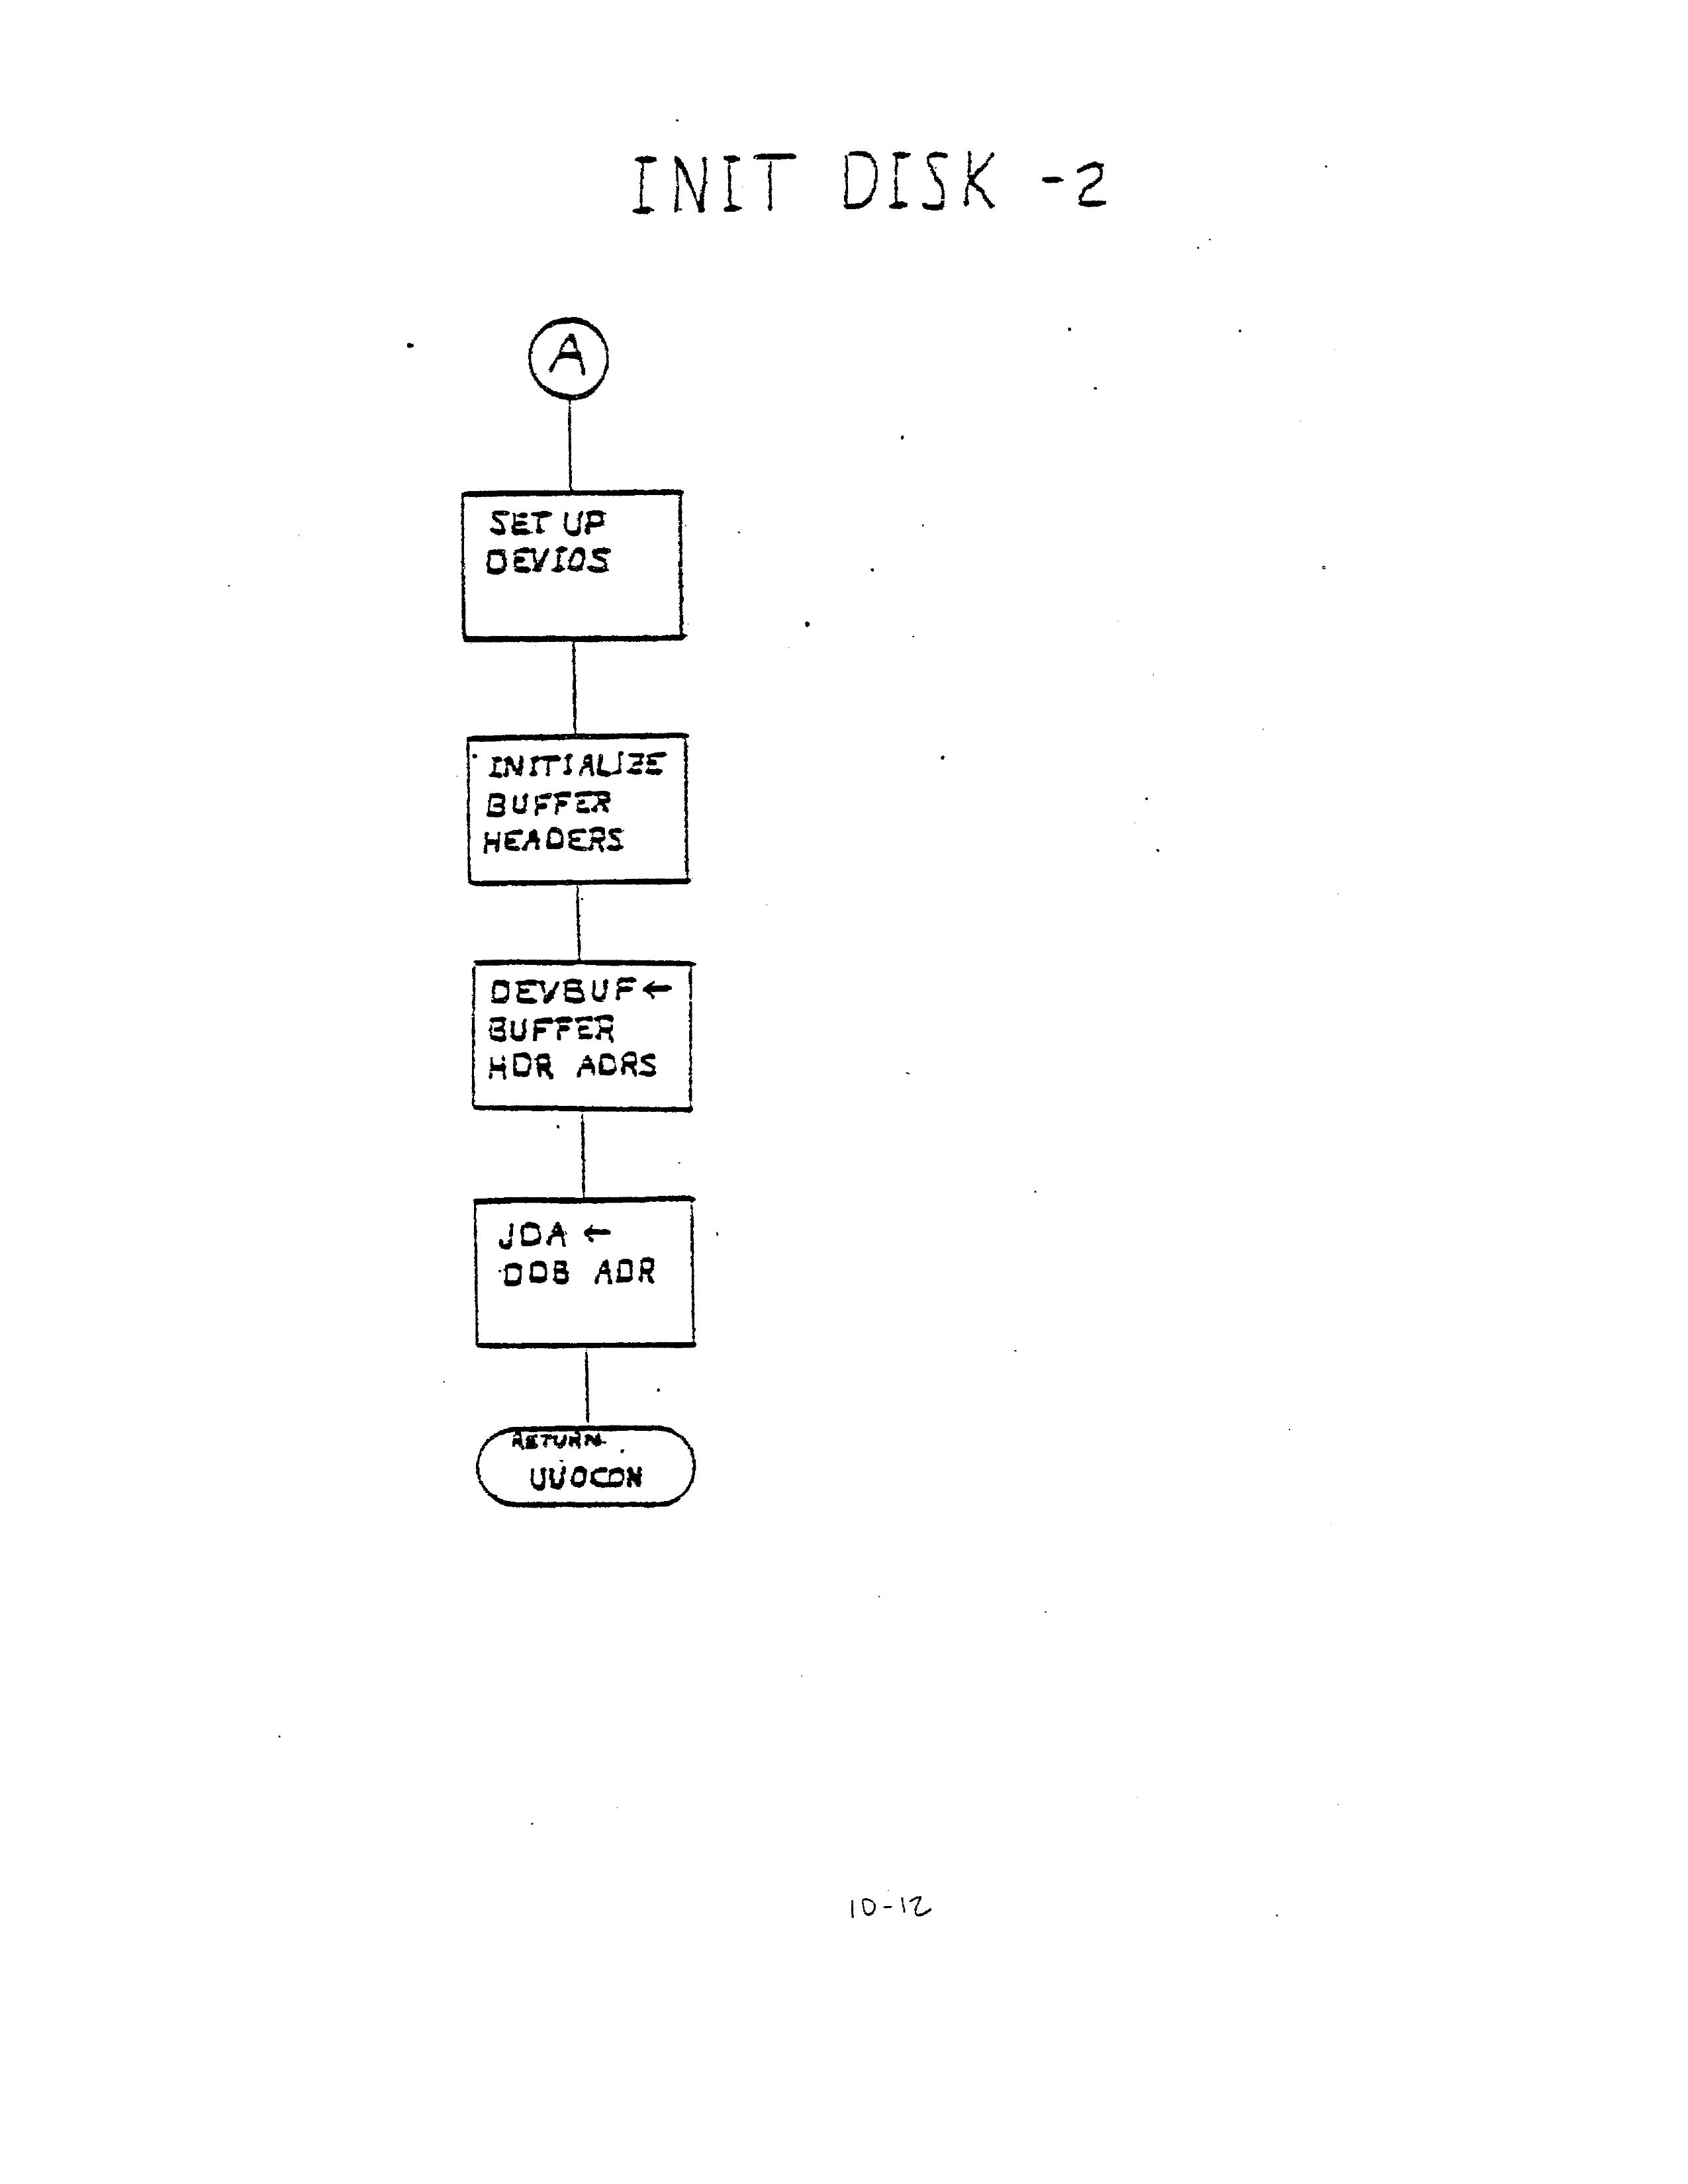 INIT DISK -2
A
SET UP
DEVIOS
INITIALIZE
BUFFER
HEADERS
DEVBUF ←
BUFFER
HDR ADRS
JDA ←
DDB ADR
RETURN
UUOCON
10-12